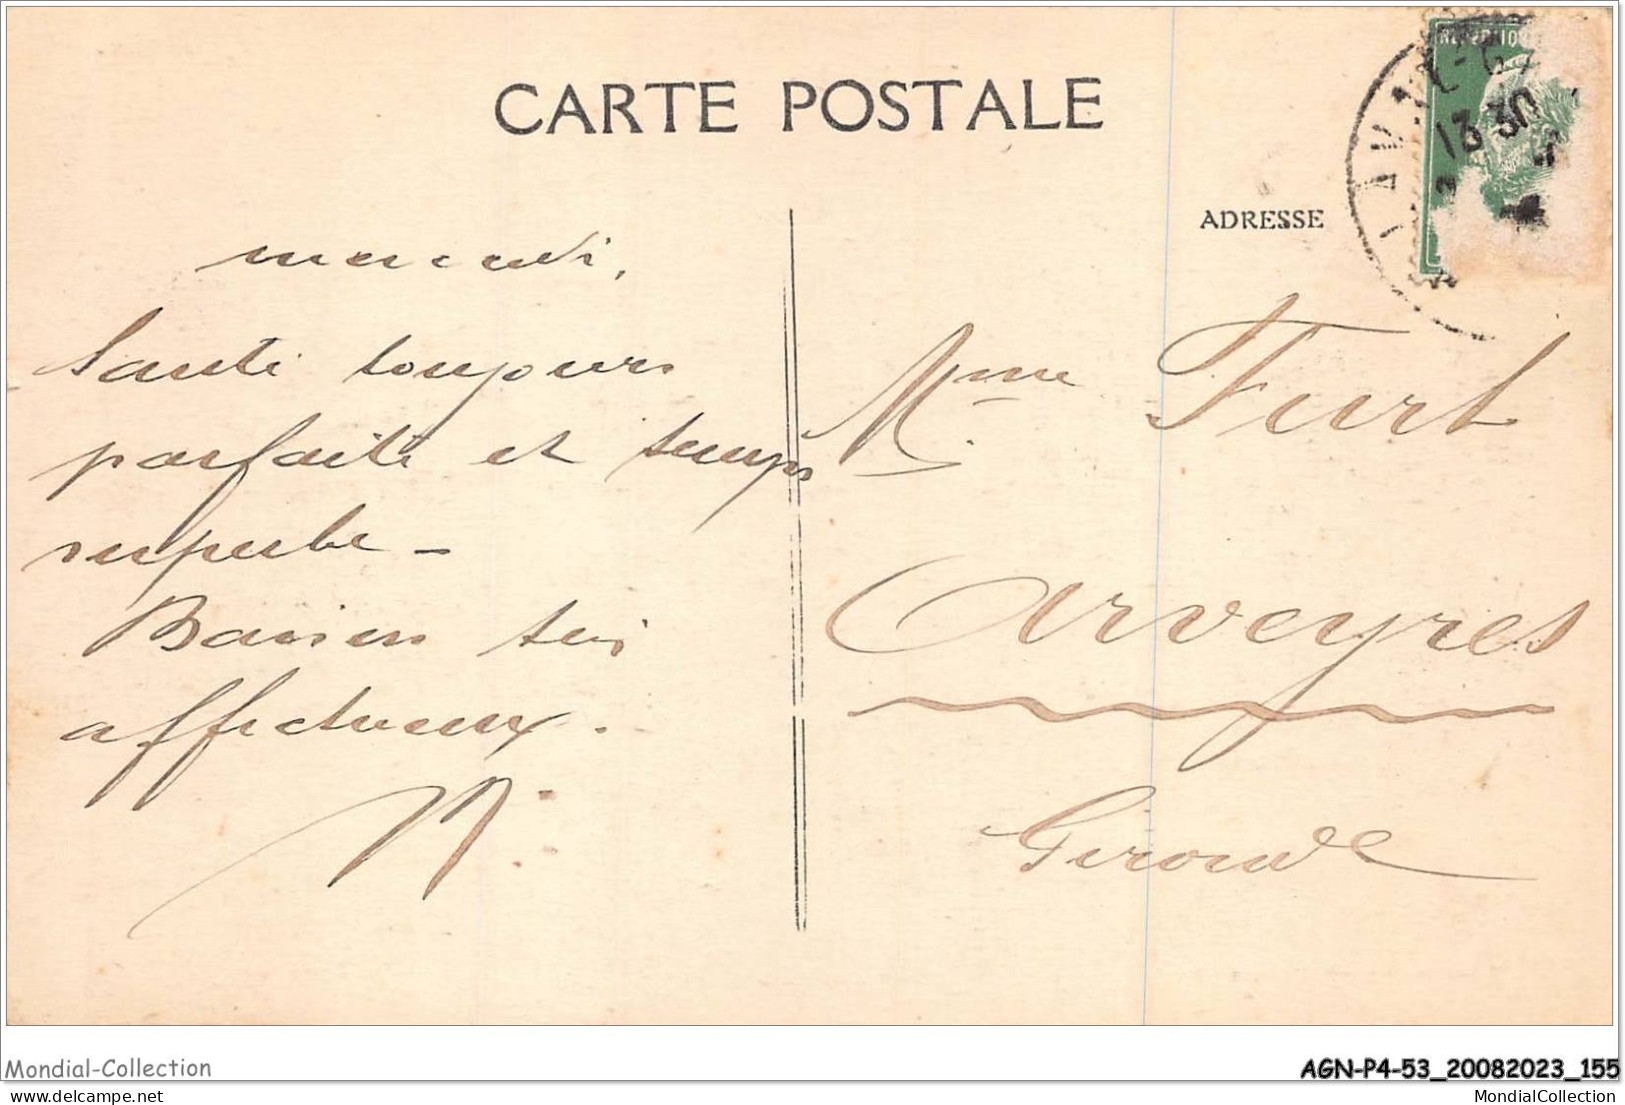 CARTE POSTALE
ADRESSE
13 30
mercredi,
Santé toujours
parfaite et temps
superbe -
Baisers très
affectueux.
Mme Furt
Arveyres
Gironde
Mondial-Collection
AGN-P4-53_20082023_155
MondialCollection